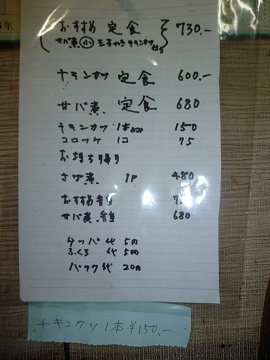 おすすめ 定食 730.-
サバ煮 小 玉子やき チキンカツ
チキンカツ 定食 600.-
サバ煮 定食 680
チキンカツ 1本 150
コロッケ 1コ 75
お持ち帰り
さば煮 1P 480
おすすめ弁当
サバ煮 弁当 680
タッパ代 5円
ふくろ代 5円
パック代 20円
チキンカツ 1本 ¥150.-